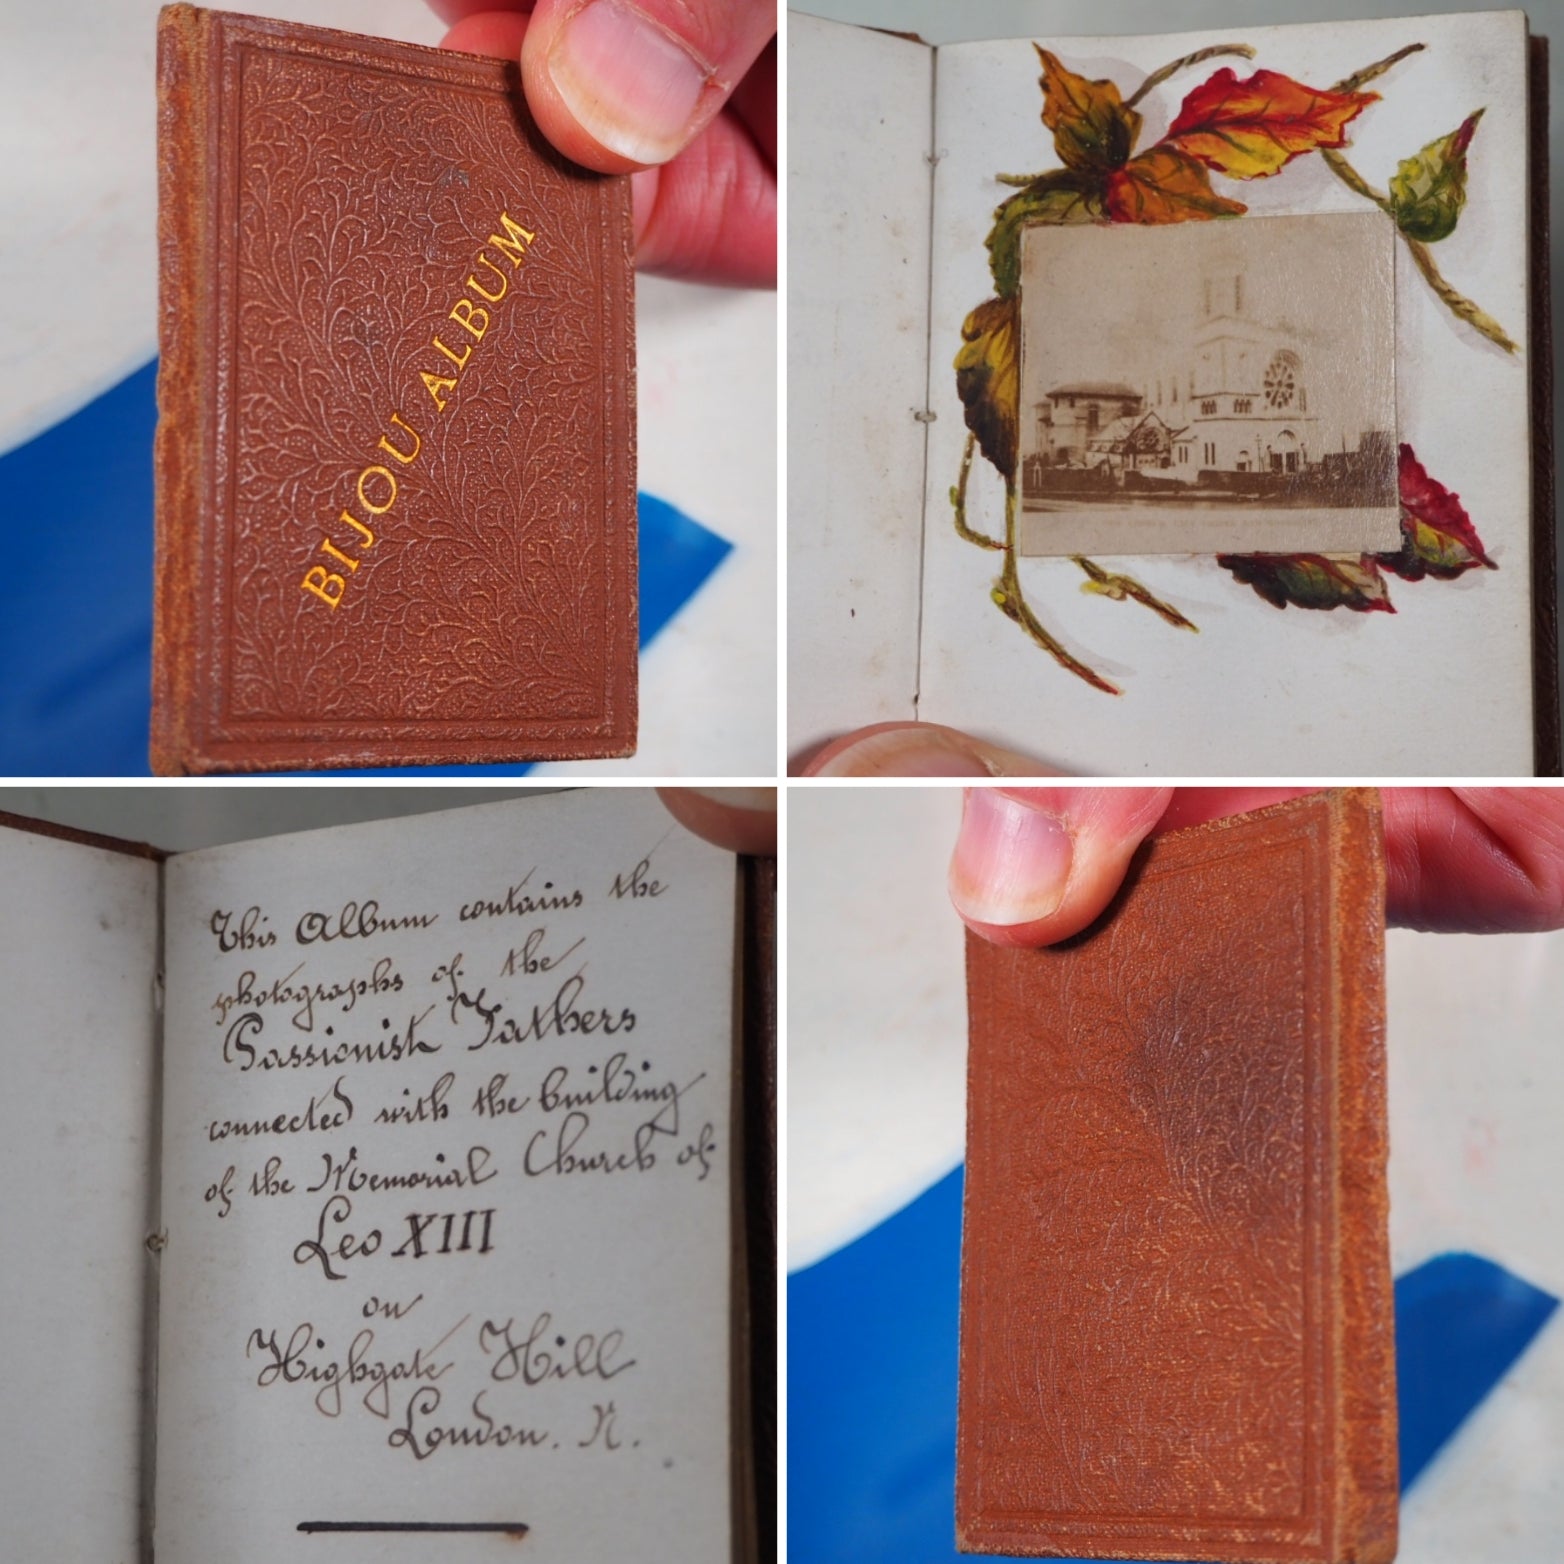 BIJOU ALBUM
This Album contains the
photographs of the
Passionist Fathers
connected with the building
of the Memorial Church of
Leo XIII
on
Highgate Hill
London. N.